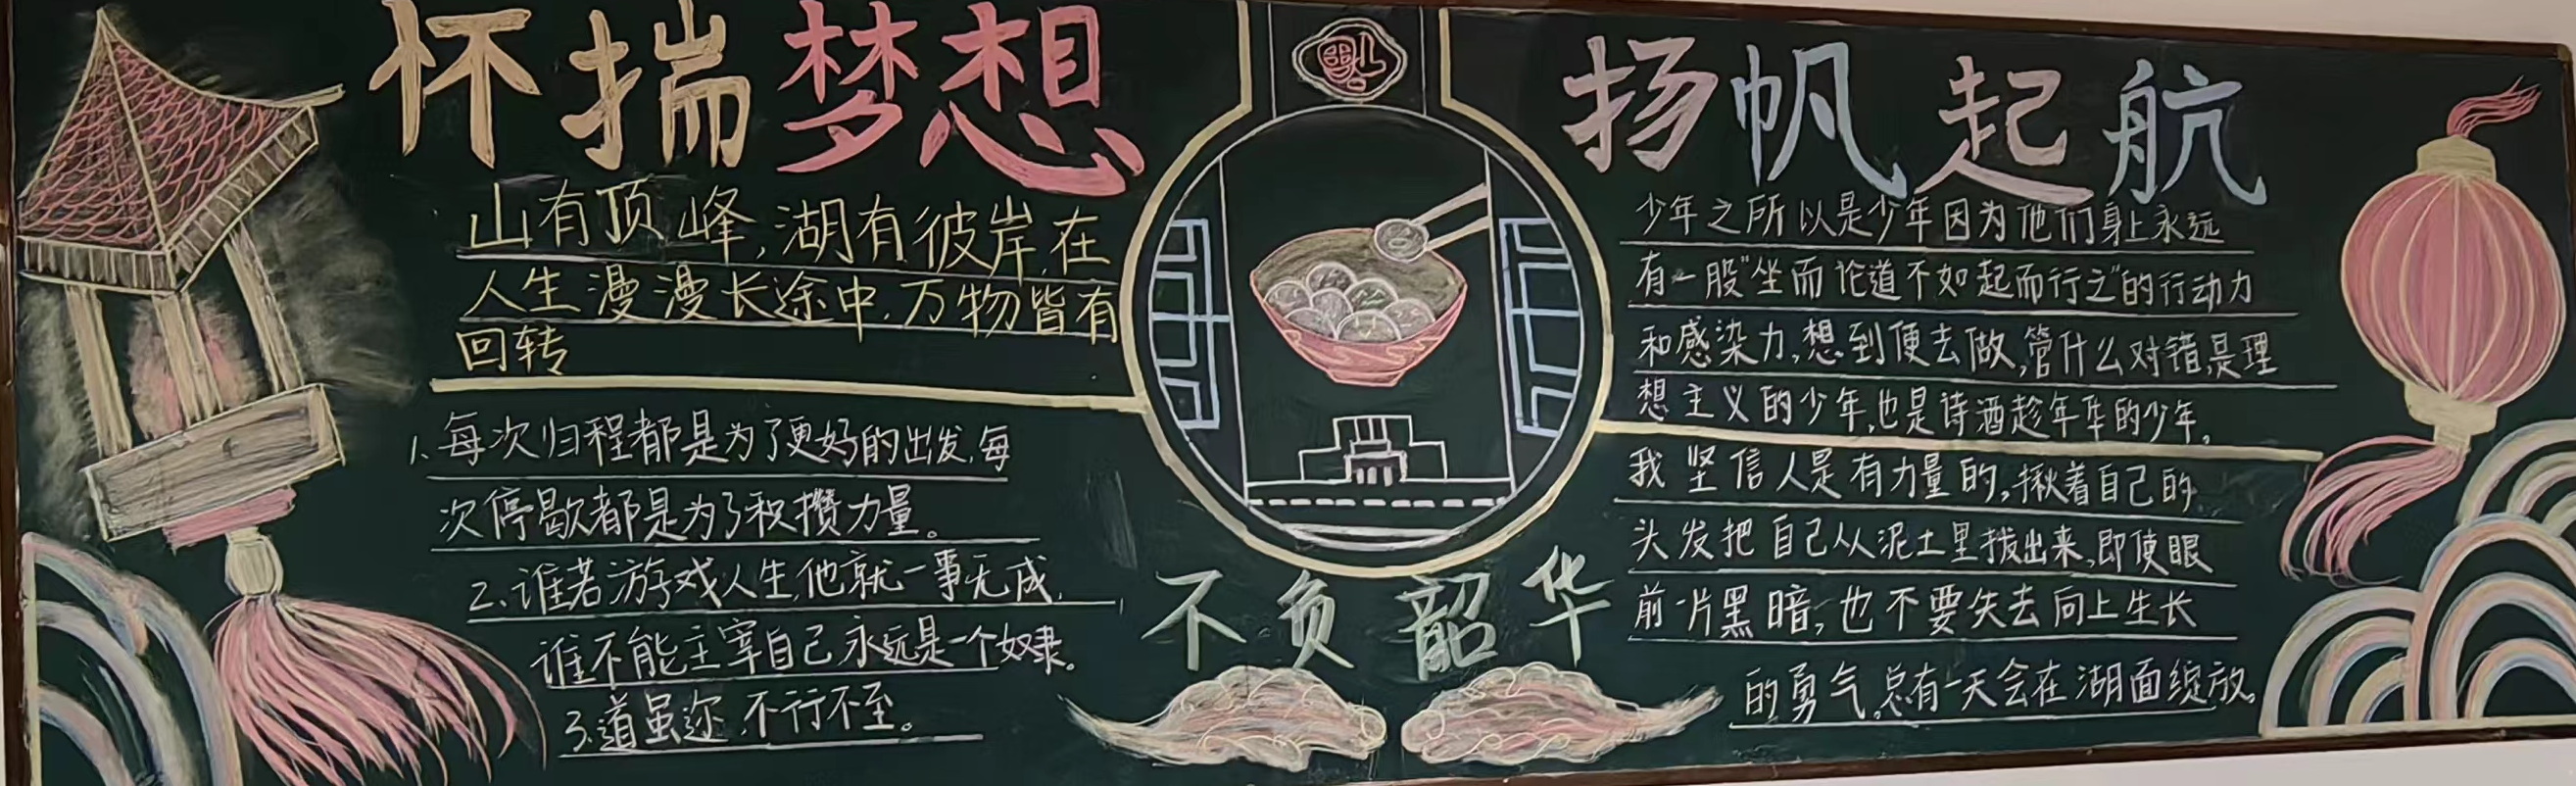 怀揣梦想
山有顶峰,湖有彼岸,在
人生漫漫长途中,万物皆有
回转
1、每次归程都是为了更好的出发,每
次停歇都是为了积攒力量。
2、谁若游戏人生,他就一事无成,
谁不能主宰自己永远是一个奴隶。
3、道虽迩,不行不至。
福
不负韶华
扬帆起航
少年之所以是少年因为他们身上永远
有一股“坐而论道不如起而行之”的行动力
和感染力,想到便去做,管什么对错,是理
想主义的少年,也是诗酒趁年华的少年。
我坚信人是有力量的,揪着自己的
头发把自己从泥土里拔出来,即使眼
前一片黑暗,也不要失去向上生长
的勇气。总有一天会在湖面绽放。